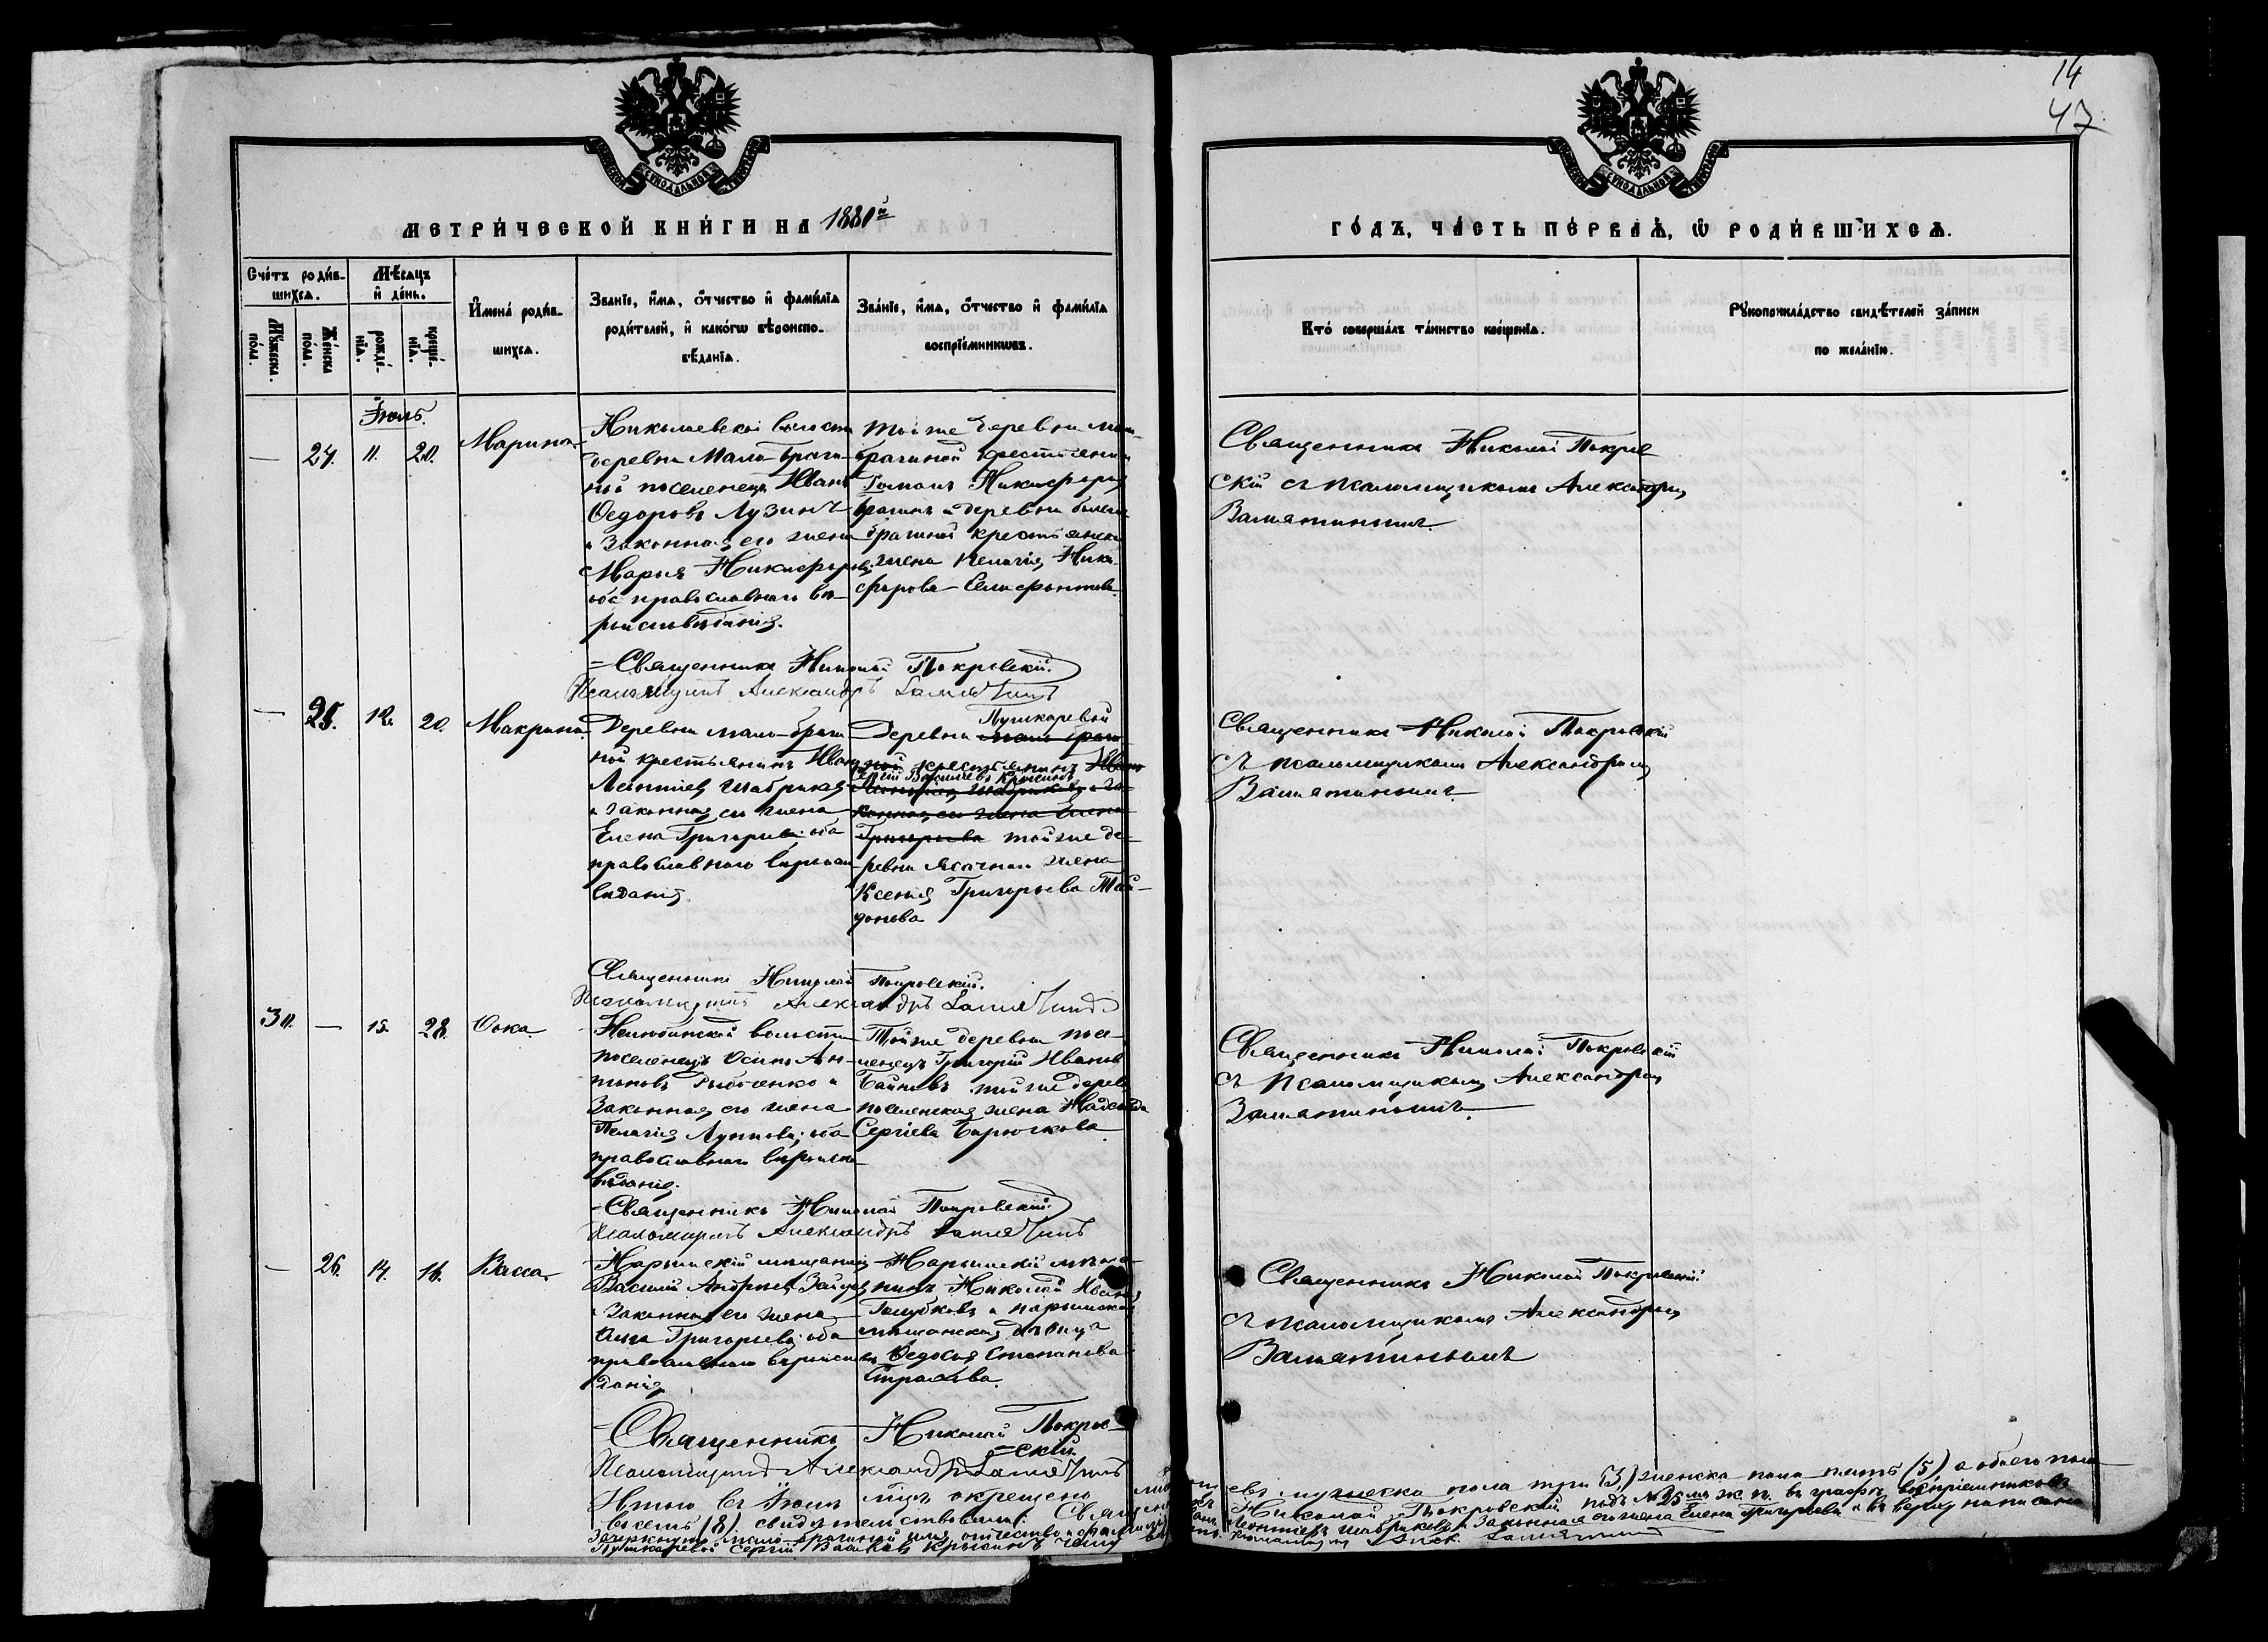 14
47
МЕТРИЧЕСКОЙ КНИГИ НА 1880й
ГОДЪ, ЧАСТЬ ПЕРВАЯ, Ѡ РОДИВШИХСЯ.
Счетъ родив-
шихся.
Мужеска пола.
Женска пола.
Мѣсяцъ
и день.
рожде-
нія.
креще-
нія.
Имена родив-
шихся.
Званіе, имя, отчество и фамилія
родителей, и какогѡ вѣроиспо-
вѣданія.
Званіе, имя, отчество и фамилія
воспріемникѡвъ.
Кто совершалъ таинство крещенія.
Рукоприкладство свидѣтелей записи
по желанію.
Іюль.
— 24. 11. 20. Марина
Николаевской волости
деревни Мало-Браги-
ной поселенецъ Иванъ
Ѳедоровъ Лузинъ
и законная его жена
Марья Никифорова
оба православнаго вѣ-
роисповѣданія.
Тойже деревни Мало-
брагиной крестьянинъ
Никифоровъ
Брагинъ и деревни
брагиной крестьянская
жена Пелагія Ники-
форова
Священникъ Николай Покров
скій съ псаломщикомъ Александромъ
Замятинымъ.
=Священникъ Николай Покровскій.
Псаломщикъ Александръ Замятинъ
— 25. 12. 20. Макрина
Деревни мало-браги
ной крестьянинъ Иванъ
Леонтіевъ Шабриковъ
и законная его жена
Елена Григорьева оба
православнаго вѣроиспо
веданія.
Пушкаревой
Деревни мало-браги-
ной крестьянинъ Иванъ
Сергій Васильевъ Крысинъ
Леонтіевъ Шабриковъ и за-
конная его жена Елена
Григорьева тойже де-
ревни ясачная жена
Ксенія Григорьева
Священникъ Николай Покровскій
съ псаломщикомъ Александромъ
Замятинымъ.
Священникъ Николай Покровскій.
Псаломщикъ Александръ Замятинъ
30. — 15. 28. Ѳока
Нелюбинской волости
поселенецъ Осипъ Ан-
тоновъ и
законная его жена
Пелагія оба
православнаго вѣроиспо
вѣданія.
Тойже деревни посе-
ленецъ Григорій Ивановъ
тойже дерев.
поселенская жена Надежда
Сергіева Бирюскова
Священникъ Николай Покровскій
съ псаломщикомъ Александромъ
Замятинымъ.
=Священникъ Николай Покровскій
Псаломщикъ Александръ Замятинъ
— 26. 14. 16. Васса
Нарымскій мѣщанинъ
Василій Андреевъ Зайцевъ
и законная его жена
Григорьева оба
православнаго вѣроиспове
данія
Нарымскій мѣща-
нинъ Николай Ивановъ
Голубковъ и нарымская
мѣщанская дѣвица
Ѳедосья Степанова
Священникъ Николай Покровскій
съ псаломщикомъ Александромъ
Замятинымъ
=Священникъ Николай Покров-
=скій.
Псаломщикъ Александръ Замятинъ
Итого въ Іюлѣ мѣцѣ окрещено младенцевъ мужеска пола три (3) женска пола пять (5) а обоего пола
восемь (8) свидѣтельствовали: Священникъ Николай Покровскій подъ №25мъ ж. п. въ графѣ воспріемниковъ
зачеркнуто мало-брагиной имя, отчество и фамилія Иванъ Леонтіевъ Шабриковъ и законная его жена Елена Григорьева и въ верху написано
Пушкаревой Сергій Васильевъ Крысинъ Замятинъ